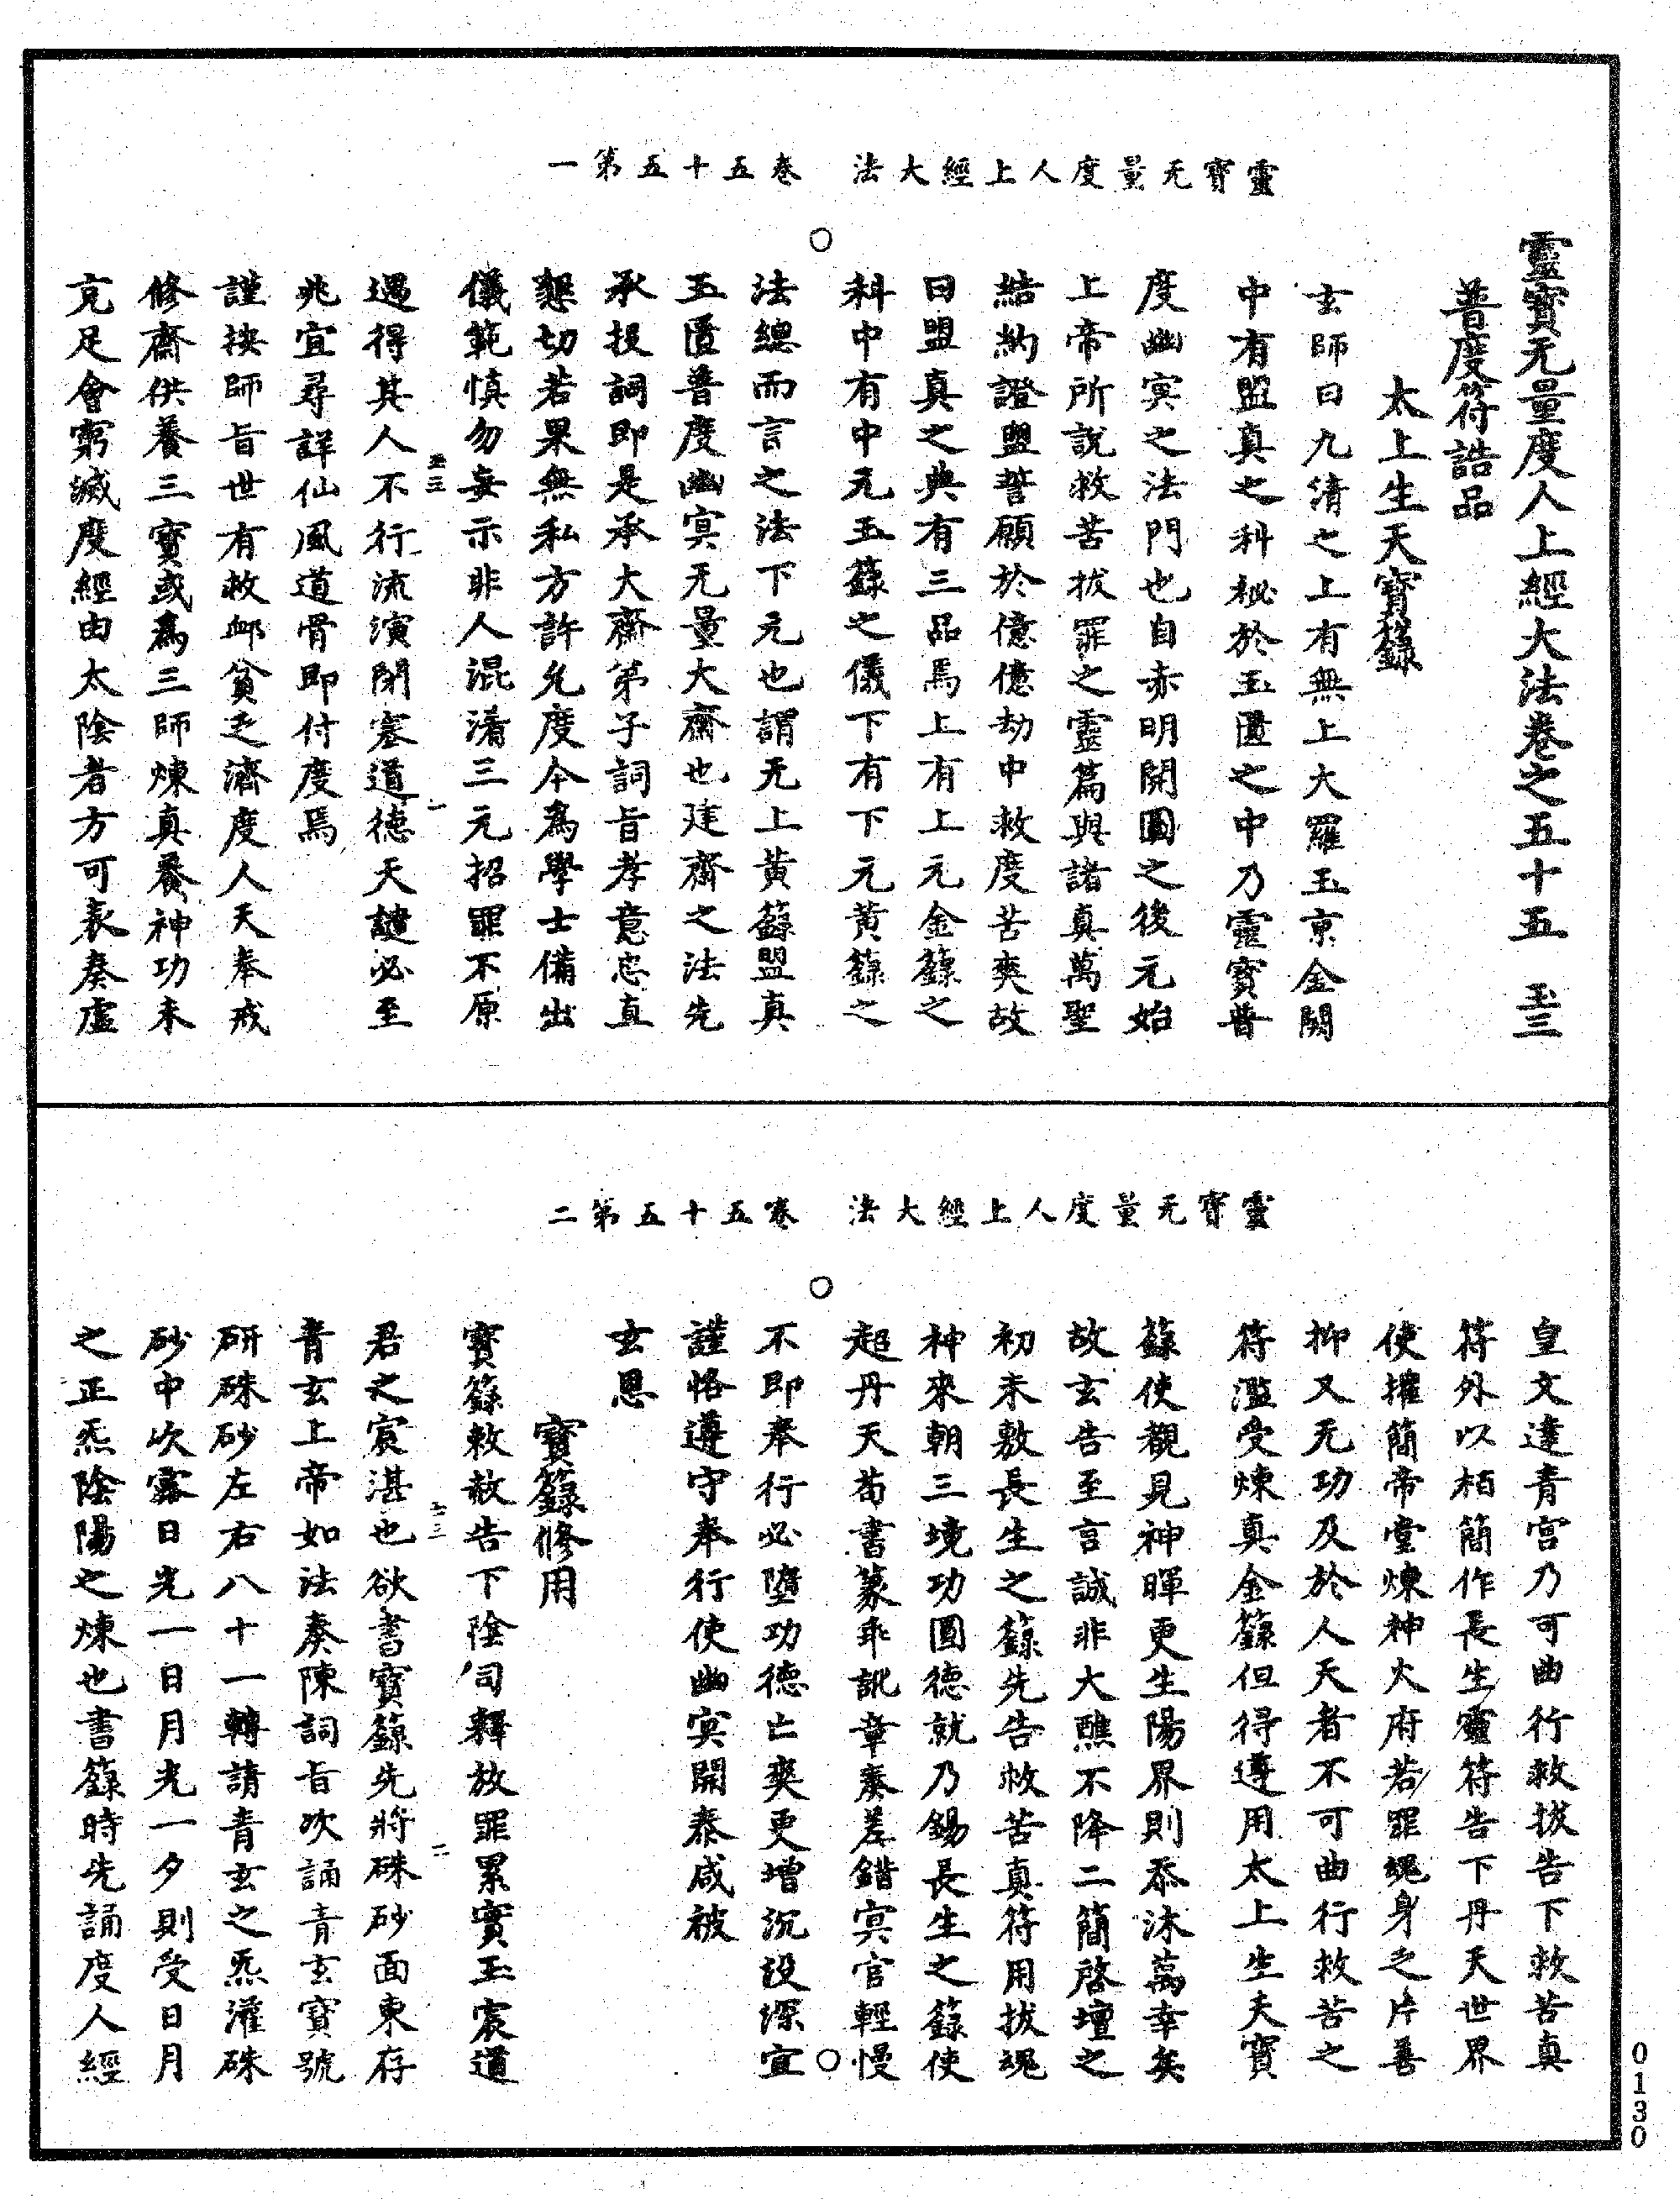 靈寶无量度人上經大法　卷五十五第一
靈寶无量度人上經大法卷之五十五　玉三
普度符誥品
太上生天寶籙
玄師曰九清之上有無上大羅玉京金闕
中有盟真之科祕於玉匱之中乃靈寶普
度幽冥之法門也自赤明開圖之後元始
上帝所說救苦拔罪之靈篇與諸真萬聖
結約證盟誓願於億億劫中救度苦爽故
曰盟真之典有三品焉上有上元金籙之
科中有中元玉籙之儀下有下元黃籙之
法總而言之法下元也謂无上黃籙盟真
玉匱普度幽冥无量大齋也建齋之法先
承投詞即是承大齋弟子詞旨孝意忠直
懇切若果無私方許允度今為學士備出
儀範慎勿妄示非人混淆三元招罪不原
遇得其人不行流演閉塞道德天譴必至
玉三
一
兆宜尋詳仙風道骨即付度焉
謹按師旨世有救卹貧乏濟度人天奉戒
修齋供養三寶或為三師煉真養神功未
充足會窮滅度經由太陰者方可表奏虛
靈寶无量度人上經大法　卷五十五第二
皇文達青宮乃可曲行救拔告下救苦真
符外以栢簡作長生靈符告下丹天世界
使擢簡帝堂煉神火府若罪魂身乏片善
抑又无功及於人天者不可曲行救苦之
符濫受煉真金籙但得遵用太上生天寶
籙使覩見神暉更生陽界則忝沐萬幸矣
故玄告至言誠非大醮不降二簡啓壇之
初未敷長生之籙先告救苦真符用拔魂
神來朝三境功圓德就乃錫長生之籙使
超丹天苟書篆乖訛章奏差錯冥官輕慢
不即奉行必墮功德亡爽更增沉設深宜
謹恪遵守奉行使幽冥開泰咸被
玄恩
寶籙修用
寶籙敕赦告下陰司釋放罪累實玉宸道
君之宸湛也欲書寶籙先將硃砂面東存
玉三
二
青玄上帝如法奏陳詞旨吹誦青玄寶號
研硃砂左右八十一轉請青玄之炁灌硃
砂中吹露日光一日月光一夕則受日月
之正炁陰陽之煉也書籙時先誦度人經
0130